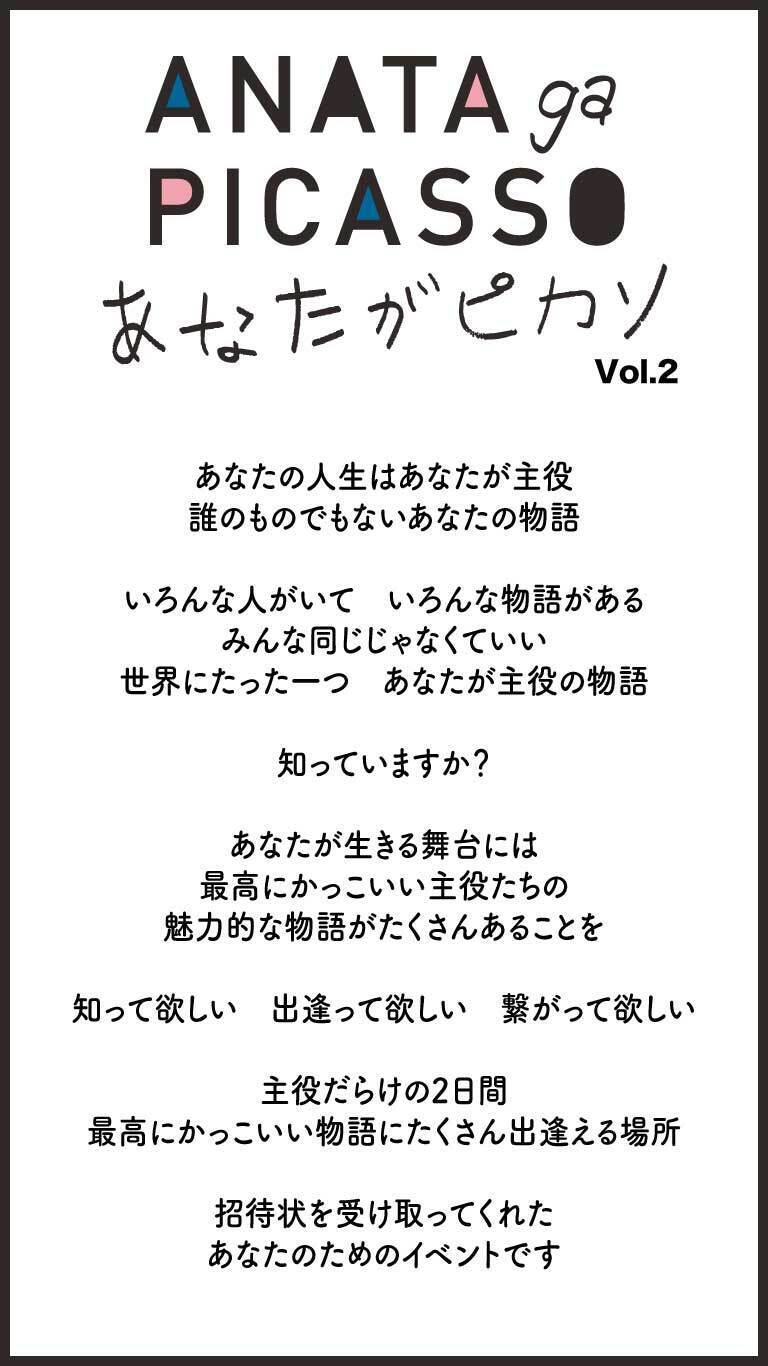 ANATA ga
PICASSO
あなたがピカソ
Vol.2
あなたの人生はあなたが主役
誰のものでもないあなたの物語
いろんな人がいて　いろんな物語がある
みんな同じじゃなくていい
世界にたった一つ　あなたが主役の物語
知っていますか？
あなたが生きる舞台には
最高にかっこいい主役たちの
魅力的な物語がたくさんあることを
知って欲しい　出逢って欲しい　繋がって欲しい
主役だらけの2日間
最高にかっこいい物語にたくさん出逢える場所
招待状を受け取ってくれた
あなたのためのイベントです